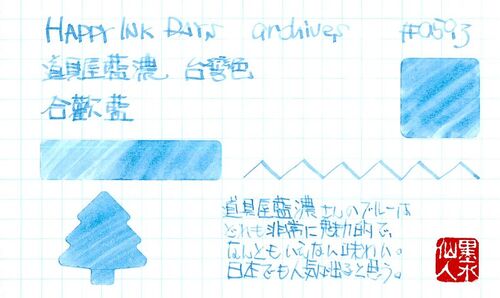 HAPPY INK DAYS archives #0593
道具屋藍濃 台湾色
合歡藍
道具屋藍濃さんのブルーは
どれも非常に魅力的で、
なんともいえない味わい。
日本でも人気が出ると思う。
墨水
仙人